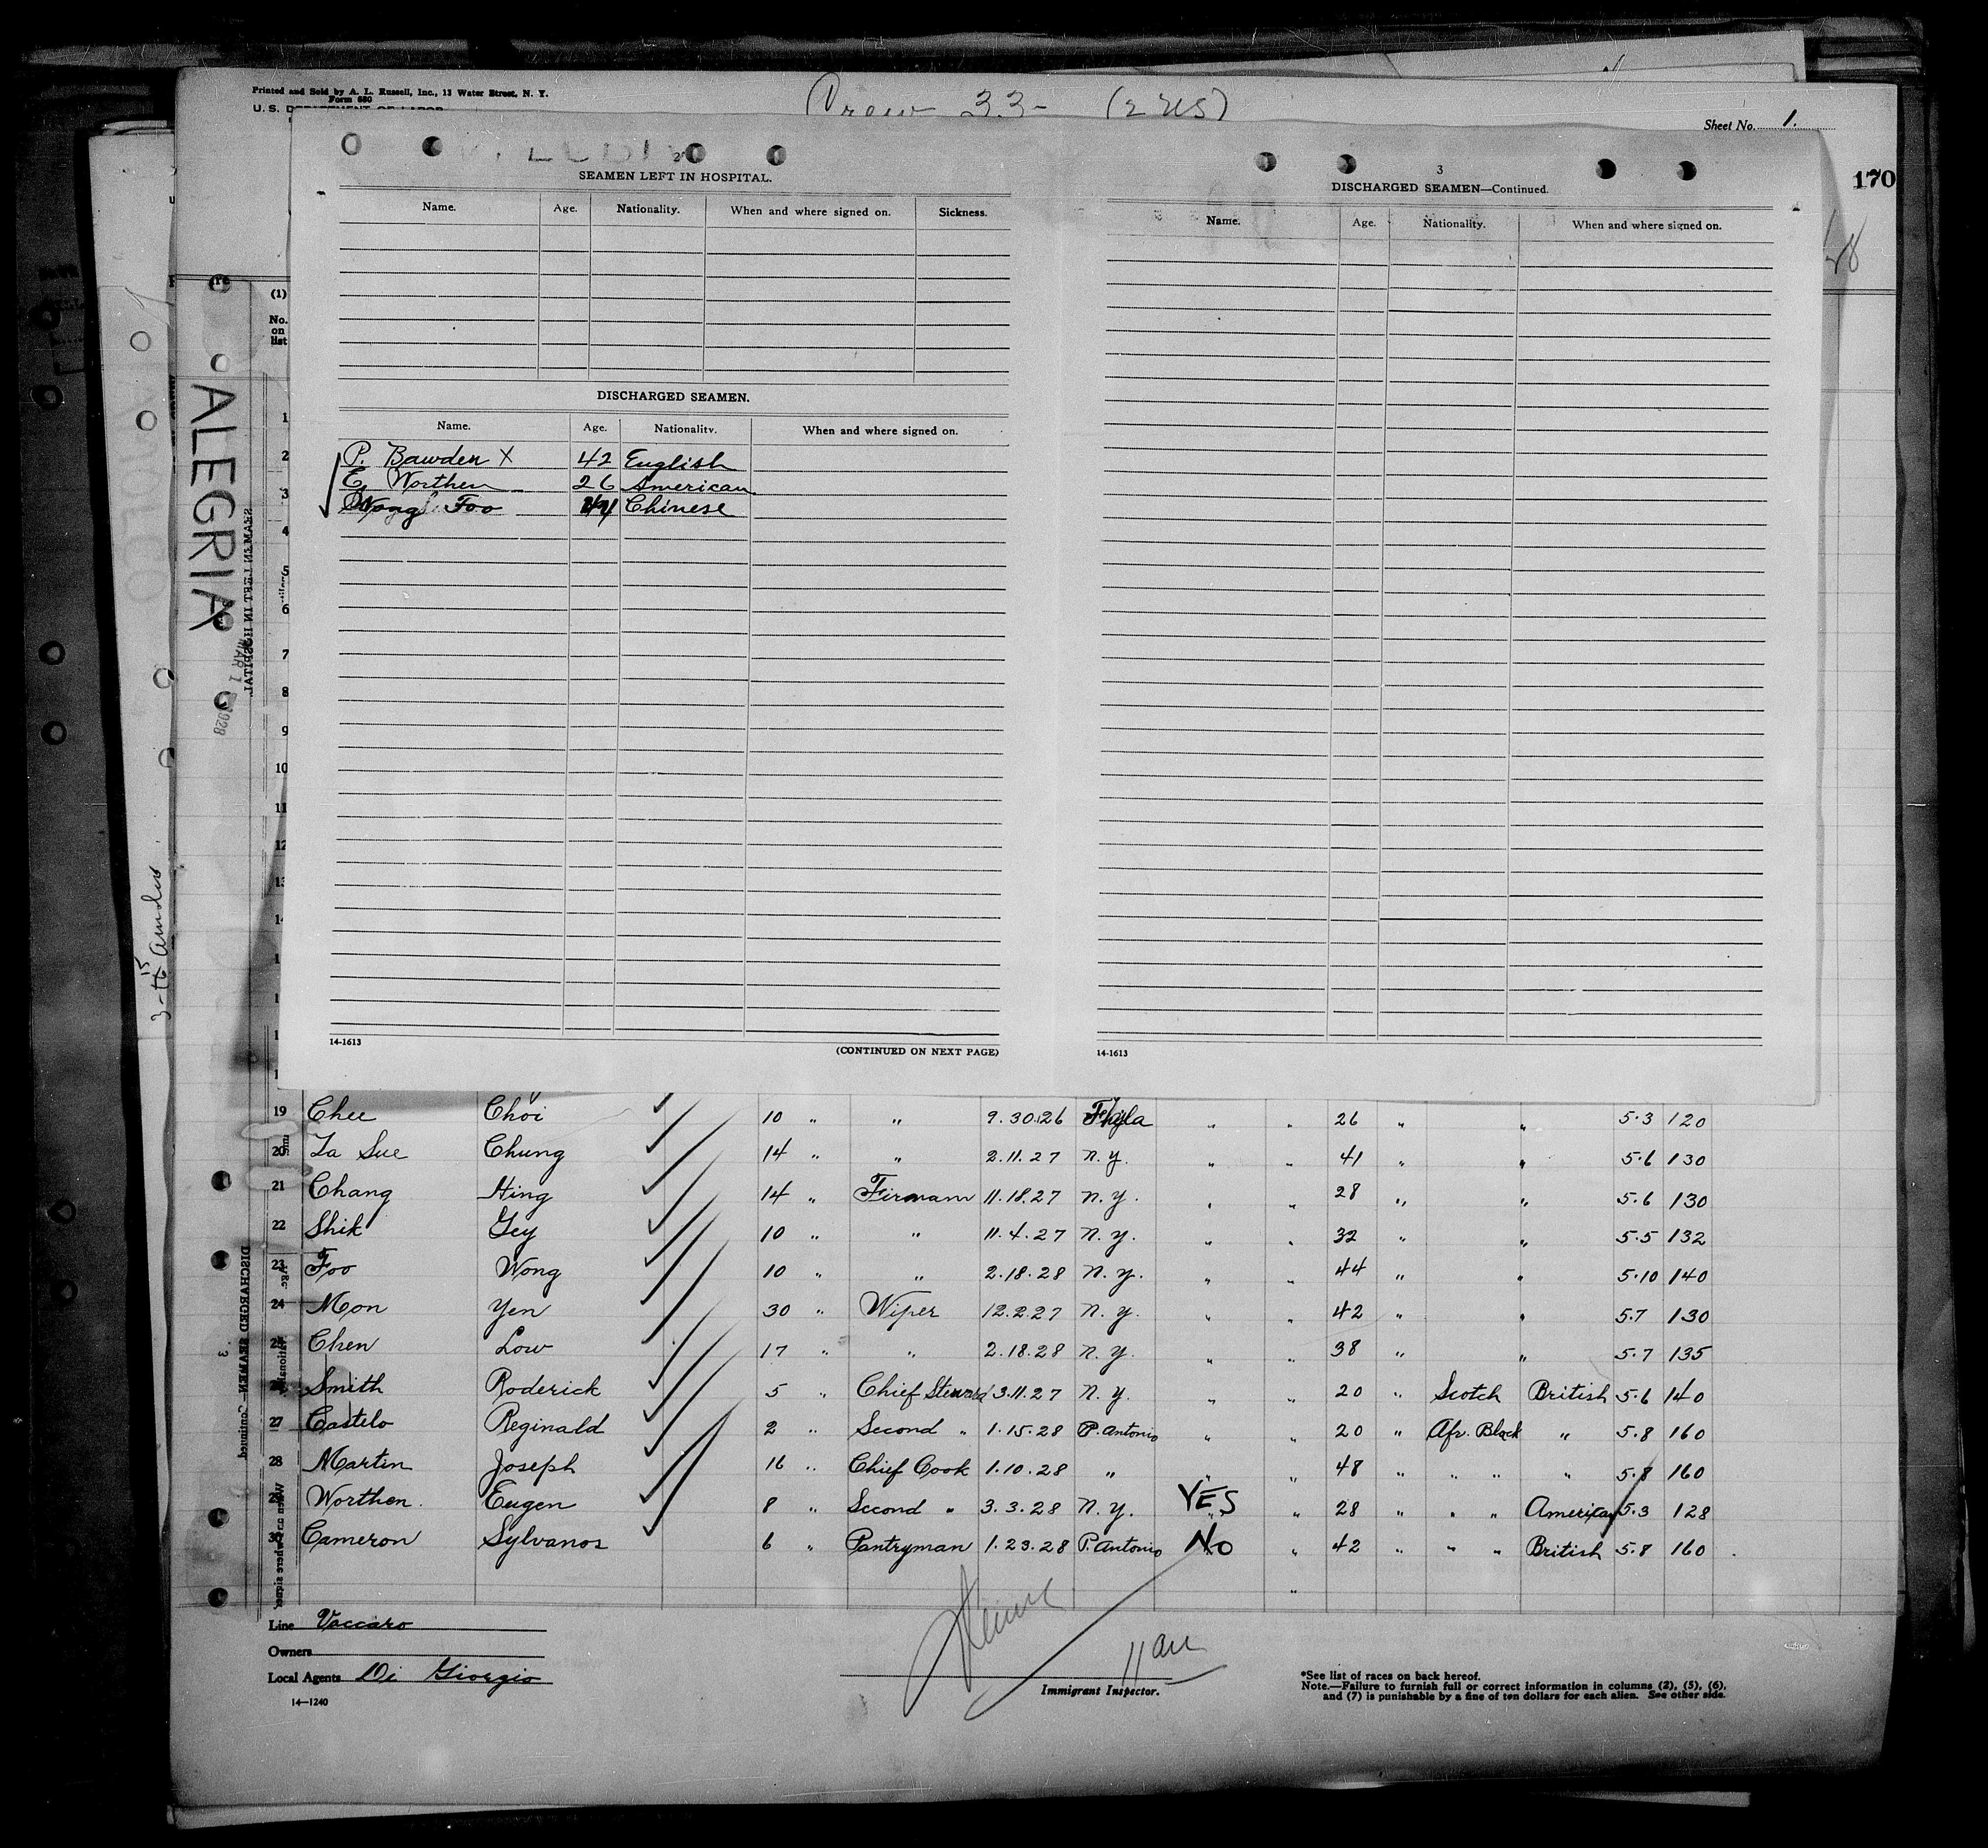 Printed and Sold by A. L. Russell, Inc., 13 Water Street, N. Y.
Form 680
U. S. DEPARTMENT OF LABOR
Crew 33- (2 US)
Sheet No. 1.
170
2
SEAMEN LEFT IN HOSPITAL.
Name. Age. Nationality. When and where signed on. Sickness.
DISCHARGED SEAMEN.
Name. Age. Nationality. When and where signed on.
P. Bawden X 42 English
E. Worthen 26 American
Wong Foo 44 Chinese
14-1613
(CONTINUED ON NEXT PAGE)
3
DISCHARGED SEAMEN—Continued.
Name. Age. Nationality. When and where signed on.
14-1613
ALEGRIA
MAR 1 1928
SEAMEN LEFT IN HOSPITAL.
DISCHARGED SEAMEN—Continued
3
(1)
No. on list
1
2
3
4
5
6
7
8
9
10
11
12
13
19 Chee Choi 10 " " 9.30.26 " " 26 " " 5.3 120
20 Za Sue Chung 14 " " 2.11.27 N.Y. " " 41 " " 5.6 130
21 Chang Hing 14 " Fireman 11.18.27 N.Y. " " 28 " " 5.6 130
22 Shik Gey 10 " " 11.4.27 N.Y. " " 32 " " 5.5 132
23 Foo Wong 10 " " 2.18.28 N.Y. " " 44 " " 5.10 140
24 Mon Yen 30 " Wiper 12.2.27 N.Y. " " 42 " " 5.7 130
25 Chen Low 17 " " 2.18.28 N.Y. " " 38 " " 5.7 135
26 Smith Roderick 5 " Chief Steward 3.11.27 N.Y. " " 20 " Scotch British 5.6 140
27 Castelo Reginald 2 " Second " 1.15.28 P. Antonio " " 20 " Afr. Black " 5.8 160
28 Martin Joseph 16 " Chief Cook 1.10.28 " " " 48 " " " " 5.8 160
29 Worthen Eugen 8 " Second " 3.3.28 N.Y. YES " 28 " " " American 5.3 128
30 Cameron Sylvanos 6 " Pantryman 1.23.28 P. Antonio No " 42 " " " British 5.8 160
Line Vaccaro
Owners
Local Agents Di Giorgio
14—1240
Immigrant Inspector.
*See list of races on back hereof.
Note.—Failure to furnish full or correct information in columns (2), (5), (6),
and (7) is punishable by a fine of ten dollars for each alien. See other side.